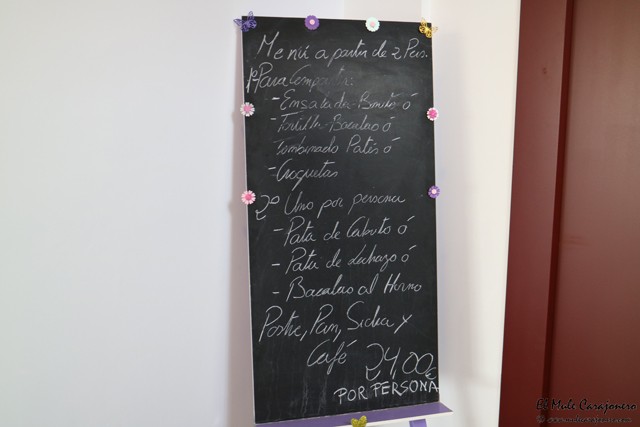 Menú a partir de 2 Pers.
1º Para Compartir:
- Ensalada-Bonito ó
- Tortilla-Bacalao ó
Combinado Patés ó
- Croquetas
2º Uno por persona
- Pata de Cabrito ó
- Pata de Lechazo ó
- Bacalao al Horno
Postre, Pan, Sidra y
Café 24,00€
POR PERSONA
El Mule Carajonero
© www.mulecarajonero.com